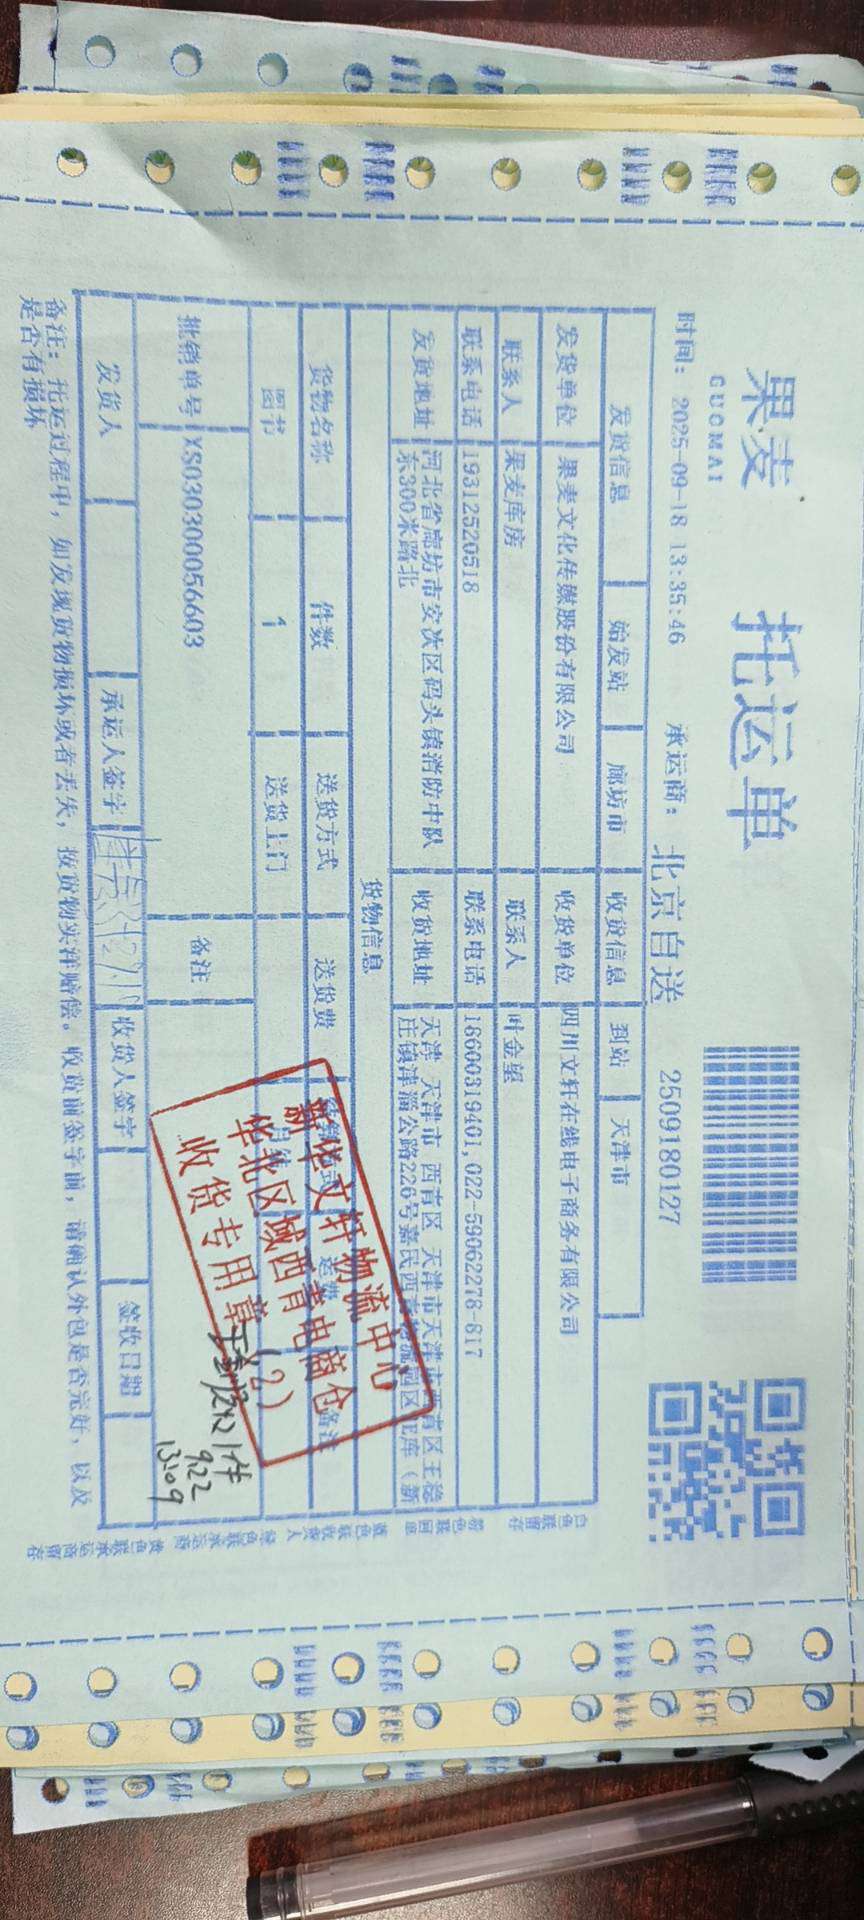 果麦
GUOMAI
托运单
时间: 2025-09-18 13:35:46 承运商: 北京自送 2509180127
发货信息 始发站 廊坊市 收货信息 到站 天津市
发货单位 果麦文化传媒股份有限公司 收货单位 四川文轩在线电子商务有限公司
联系人 果麦库房 联系人 叶金玺
联系电话 19312520518 联系电话 18600319401,022-59062278-817
发货地址 河北省廊坊市安次区码头镇消防中队东300米路北 收货地址 天津 天津市 西青区 天津市天津市西青区王稳庄镇津淄公路226号嘉民西青物流园区
货物信息
货物名称 件数 送货方式 送货费 运费 备注
图书 1 送货上门
批销单号 XS030300056603 备注
发货人 承运人签字 收货人签字 签收日期
备注: 托运过程中, 如发现货物损坏或者丢失, 按货物实洋赔偿。收货前签字前, 请确认外包是否完好, 以及
是否有损坏
新华文轩物流中心
华北区域西青电商仓
收货专用章(2)
1件
9.22
13:09
白色联留存 粉色联回单 蓝色联收货人 绿色联承运商 黄色联承运商留存